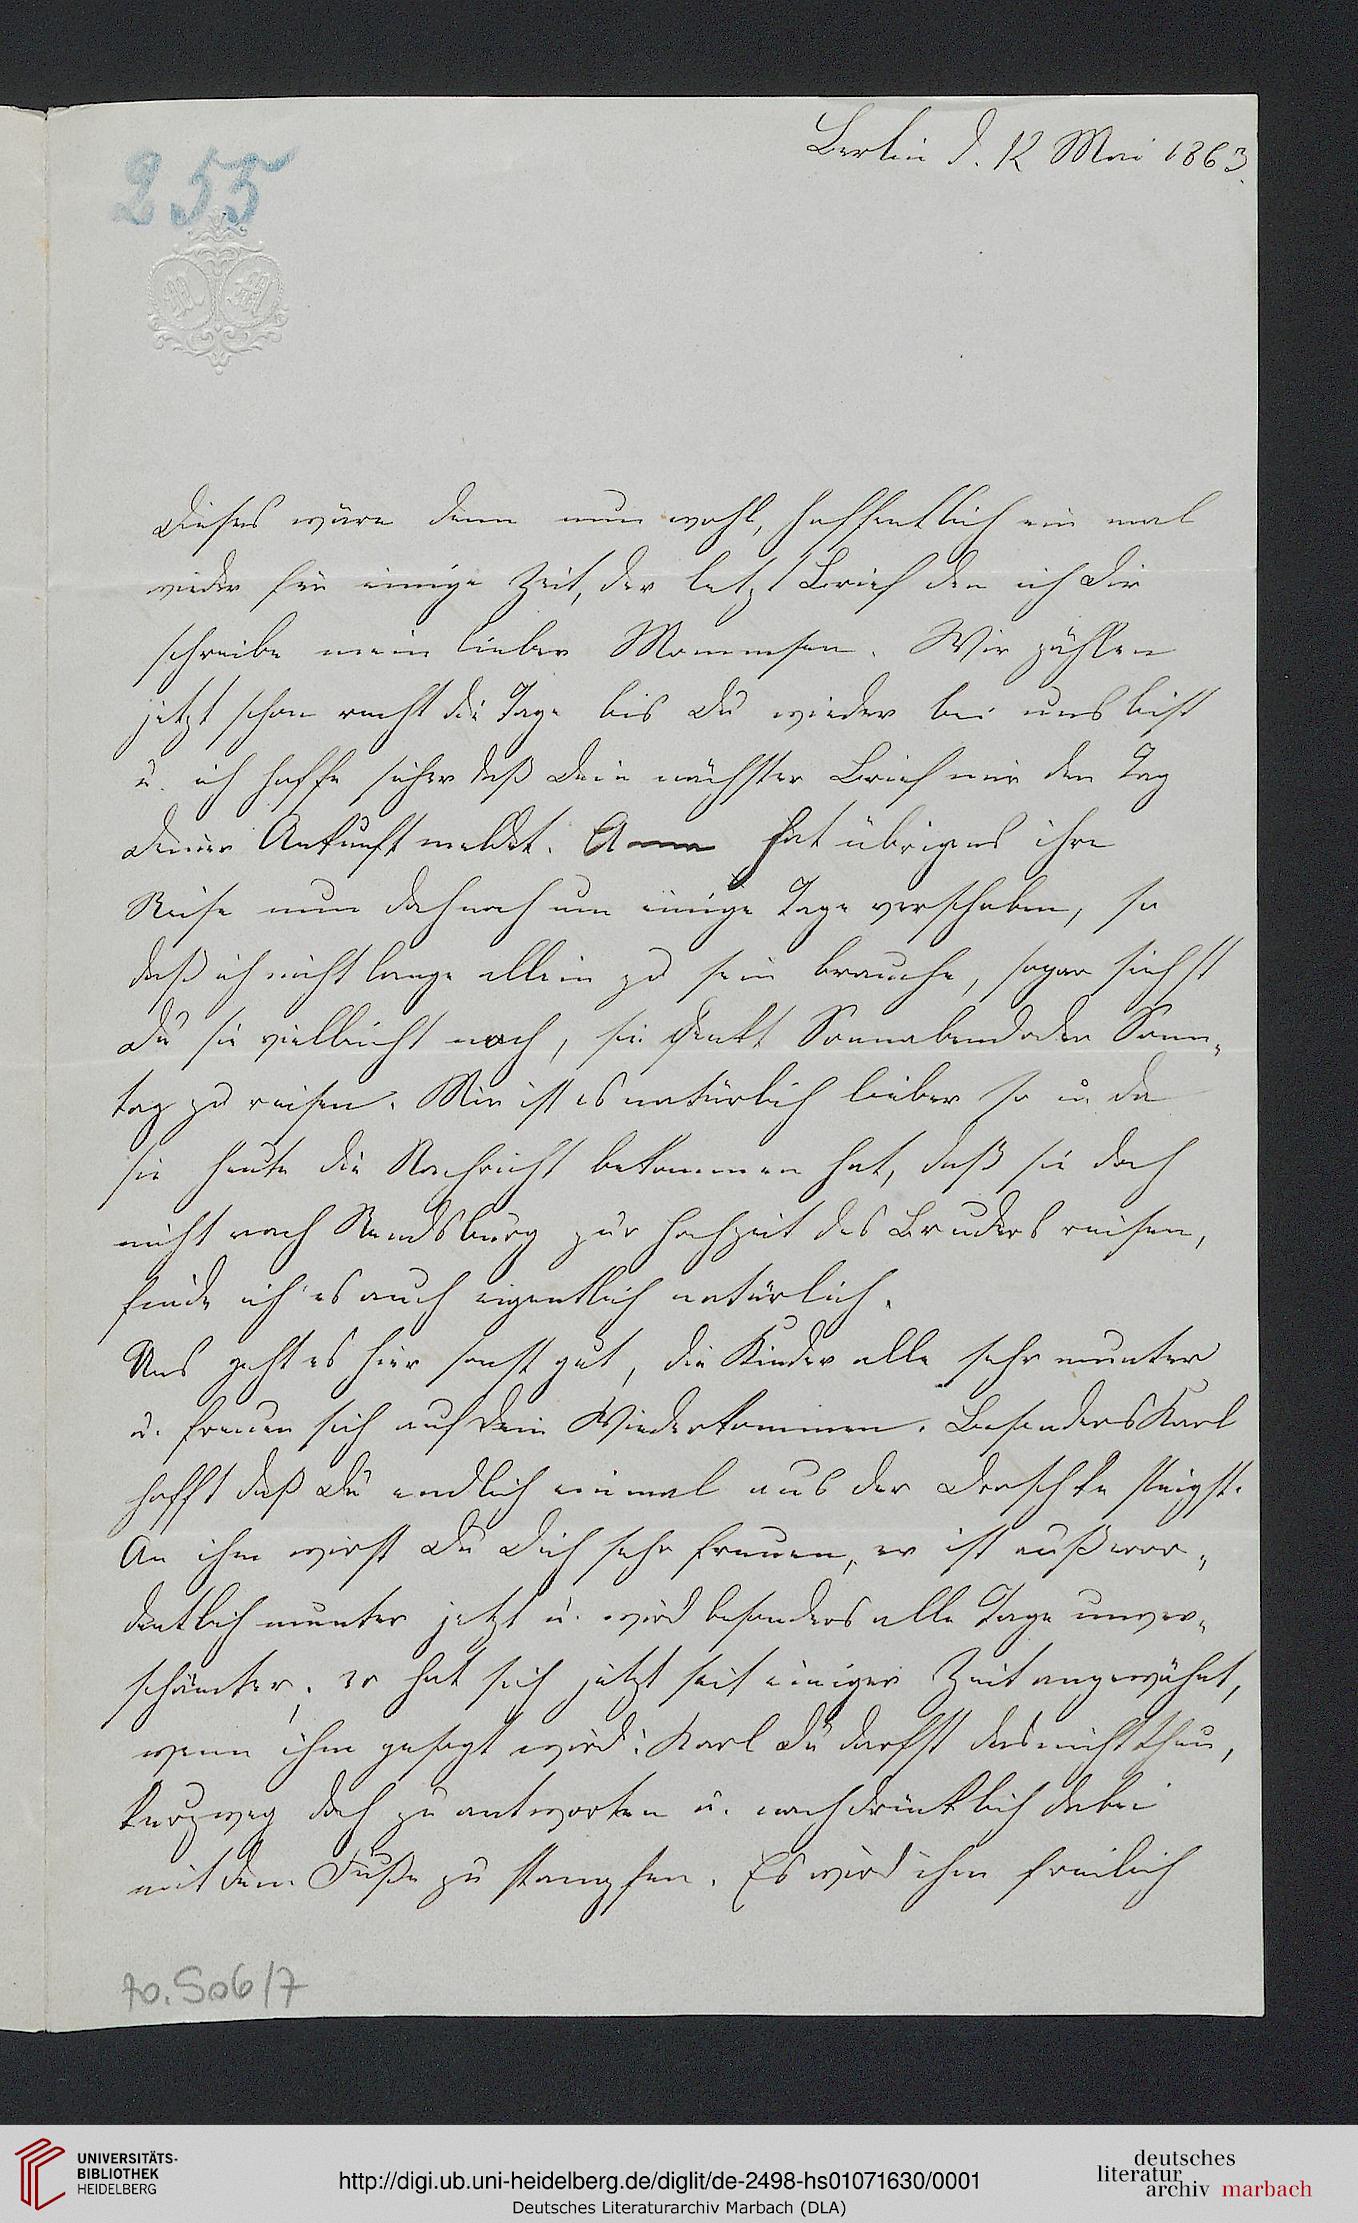 Berlin d. 12 Mai 1863.
255
Dieses wäre denn nun wohl, hoffentlich ein mal
wieder für einige Zeit, der letzt Brief den ich Dir
schreibe mein lieber Mommsen. Wir zählen
jetzt schon recht die Tage bis Du wieder bei uns bist
u. ich hoffe sicher daß Dein nächster Brief mir den Tag
Deiner Ankunft meldet. Anna hat übrigens ihre
Reise nun doch noch um einige Tage verschoben, so
daß ich nicht lange allein zu sein brauche, sogar siehst
Du sie vielleicht noch, sie denkt Sonnabend oder Sonn-
tag zu reisen. Mir ist es natürlich lieber so u. da
sie heute die Nachricht bekommen hat, daß sie doch
nicht nach Rendsburg zur Hochzeit des Bruders reisen,
finde ich es auch eigentlich natürlich.
Uns geht es hier sonst gut, die Kinder alle sehr munter
u. freuen sich auf Dein Wiederkommen. Besonders Karl
hofft daß Du endlich einmal aus der Droschke steigst.
An ihm wirst Du Dich sehr freuen, er ist außeror-
dentlich munter jetzt u. wird besonders alle Tage unver-
schämter, er hat sich jetzt seit einiger Zeit angewöhnt,
wenn ihm gesagt wird: Karl Du darfst das nicht thun,
kurzweg doch zu antworten u. nachdrücklich dabei
mit dem Fuße zu stampfen. Es wird ihm freilich
70.506/7
UNIVERSITÄTS-
BIBLIOTHEK
HEIDELBERG
http://digi.ub.uni-heidelberg.de/diglit/de-2498-hs01071630/0001
Deutsches Literaturarchiv Marbach (DLA)
deutsches
literatur
archiv marbach